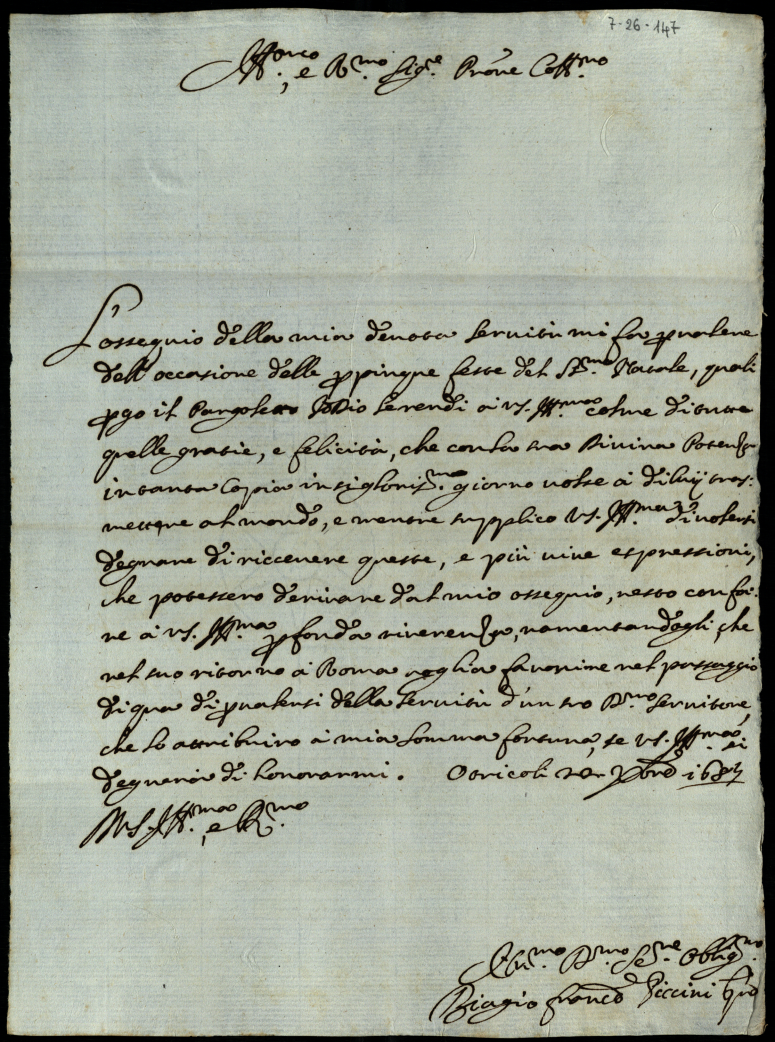 7-26-147
Ill.mo, e R.mo Sig.re Prone Coll.mo
L'ossequio della mia devota servitù mi fa pvalere
dell'occasione delle ppinque feste del S.mo Natale, quali
pgo il Pargoletto Iddio le rendi à VS. Ill.ma colme di tutte
quelle gratie, e felicità, che con la sua Divina Potenza
in tanta copia in sì glorios.mo giorno volse à di lui tras:
mettere al mondo, e mentre supplico VS. Ill.ma di volersi
degnare di riccevere queste, e più vive espressioni,
che potessero derivare dal mio ossequio, resto con fa:
re à VS. Ill.ma pfonda riverenza, ramentandogli, che
nel suo ritorno à Roma voglia favorirme nel passaggio
di qua di pvalersi della servitù d'un suo D.mo servitore,
che lo attribuirò à mia somma fortuna, se VS. Ill.ma si
degnerà di honorarmi. Otricoli Xbre
VS. Ill.ma, e R.ma
D.mo Se.re Oblig.mo
Biagio Franco Piccini